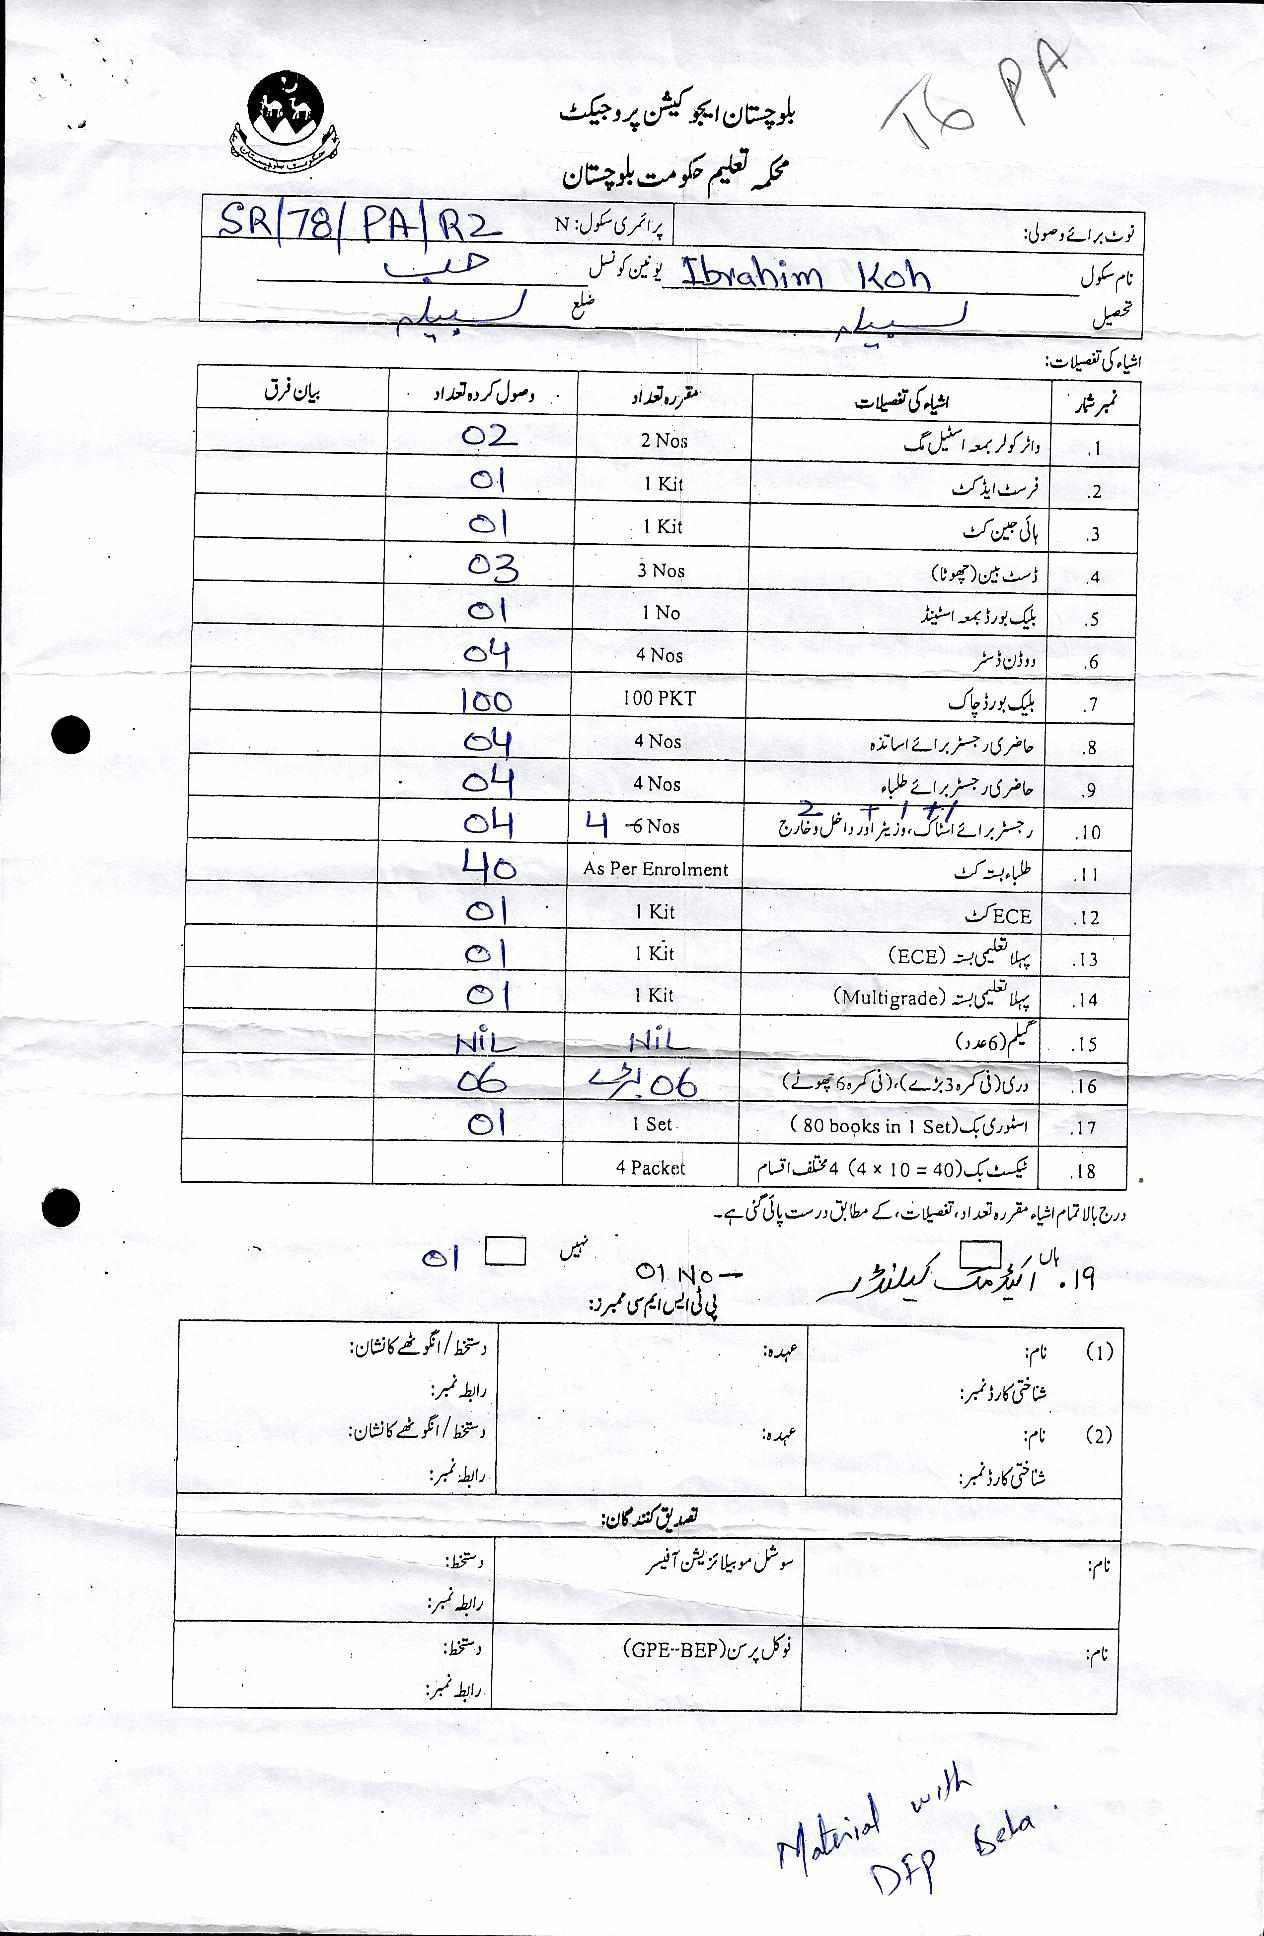 T6 PA
حکومت بلوچستان
بلوچستان ایجوکیشن پروجیکٹ
محکمہ تعلیم حکومت بلوچستان
نوٹ برائے وصولی: پرائمری سکول: N SR/78/PA/R2
نام سکول Ibrahim Koh یونین کونسل حب
تحصیل لسبیلہ ضلع لسبیلہ
اشیاء کی تفصیلات:
نمبر شمار اشیاء کی تفصیلات مقررہ تعداد وصول کردہ تعداد بیان فرق
1. واٹر کولر بمعہ اسٹیل مگ 2 Nos 02
2. فرسٹ ایڈ کٹ 1 Kit 01
3. ہائی جین کٹ 1 Kit 01
4. ڈسٹ بین (چھوٹا) 3 Nos 03
5. بلیک بورڈ بمعہ اسٹینڈ 1 No 01
6. ووڈن ڈسٹر 4 Nos 04
7. بلیک بورڈ چاک 100 PKT 100
8. حاضری رجسٹر برائے اساتذہ 4 Nos 04
9. حاضری رجسٹر برائے طلباء 4 Nos 04
2 + 1 + 1
10. رجسٹر برائے اسٹاک، وزیٹر اور داخل و خارج 4 -6 Nos 04
11. طلباء بستہ کٹ As Per Enrolment 40
12. ECE کٹ 1 Kit 01
13. پہلا تعلیمی بستہ (ECE) 1 Kit 01
14. پہلا تعلیمی بستہ (Multigrade) 1 Kit 01
15. گیلم (6 عدد) NiL NiL
16. دری (فی کمرہ 3 بڑے)، (فی کمرہ 6 چھوٹے) 06 بڑے 06
17. اسٹوری بک (80 books in 1 Set) 1 Set 01
18. ٹیکسٹ بک (4 × 10 = 40) 4 مختلف اقسام 4 Packet
درج بالا تمام اشیاء مقررہ تعداد، تفصیلات، کے مطابق درست پائی گئی ہے۔
ہاں نہیں
19. اکیڈمک کیلنڈر 01 No- 01
پی ٹی ایس ایم سی ممبرز:
(1) نام: عہدہ: دستخط / انگوٹھے کا نشان:
شناختی کارڈ نمبر: رابطہ نمبر:
(2) نام: عہدہ: دستخط / انگوٹھے کا نشان:
شناختی کارڈ نمبر: رابطہ نمبر:
تصدیق کنندگان:
نام: سوشل موبیلائزیشن آفیسر دستخط:
رابطہ نمبر:
نام: فوکل پرسن (GPE-BEP) دستخط:
رابطہ نمبر:
Material with
DFP Bela.